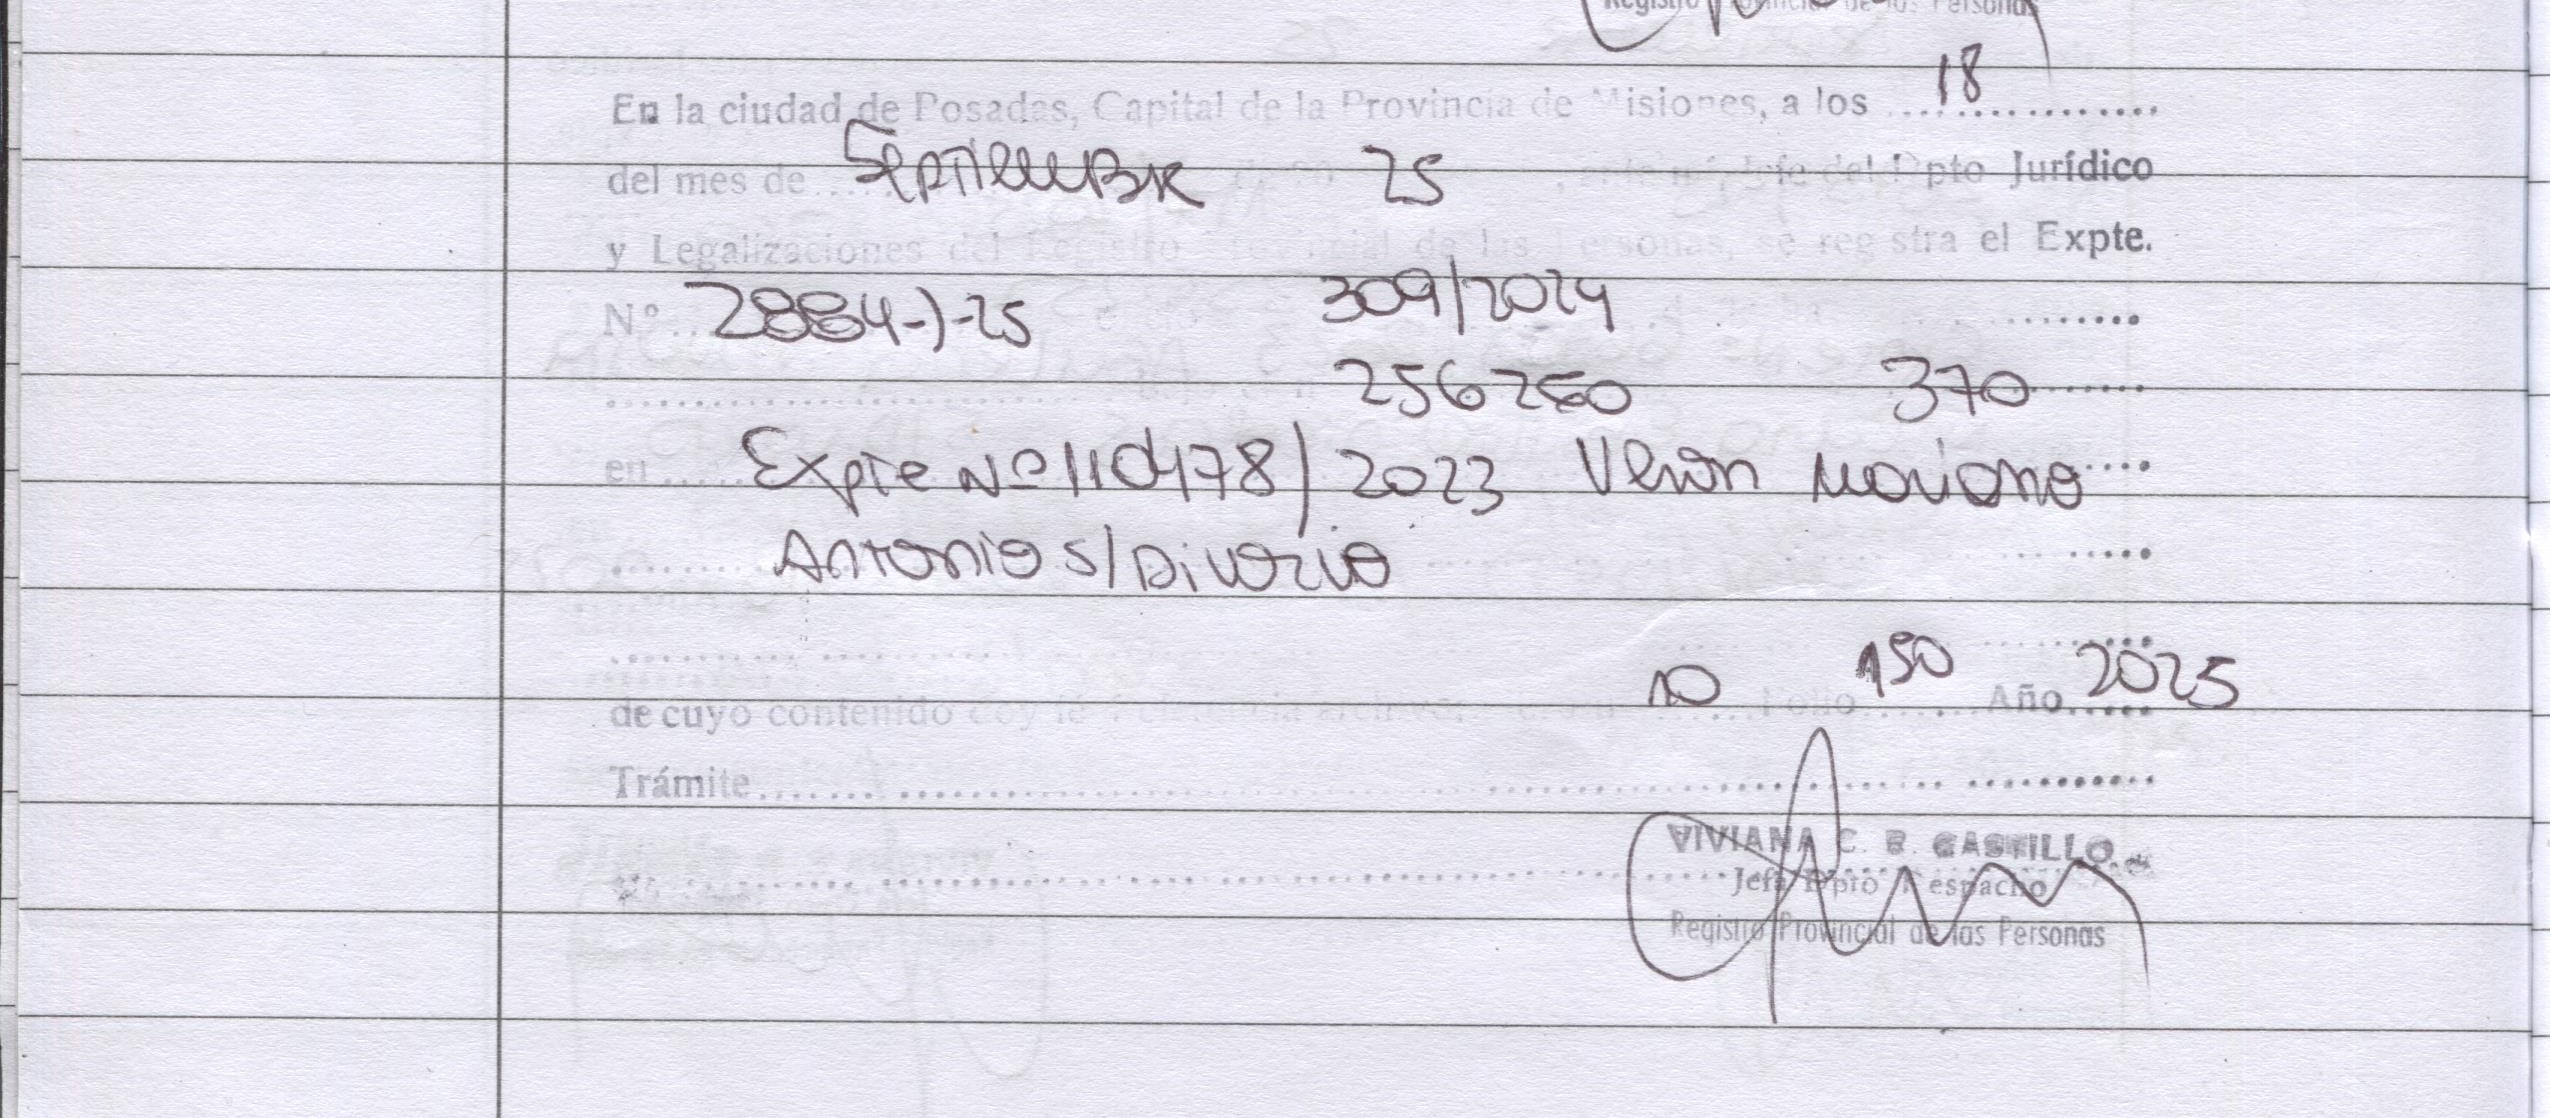 Registro Provincial de las Personas
En la ciudad de Posadas, Capital de la Provincia de Misiones, a los 18
del mes de Septiembre 25 , ante mí, Jefe del Dpto Jurídico
y Legalizaciones del Registro Provincial de las Personas, se registra el Expte.
Nº 2884-J-25 309/2024
256260 370
en Expte Nº 110478/2023 Veron Mariano
Antonio s/ Divorcio
de cuyo contenido doy fé 10 Folio 150 Año 2025
Trámite
VIVIANA C. B. CASTILLO
Jefa Dpto Despacho
Registro Provincial de las Personas